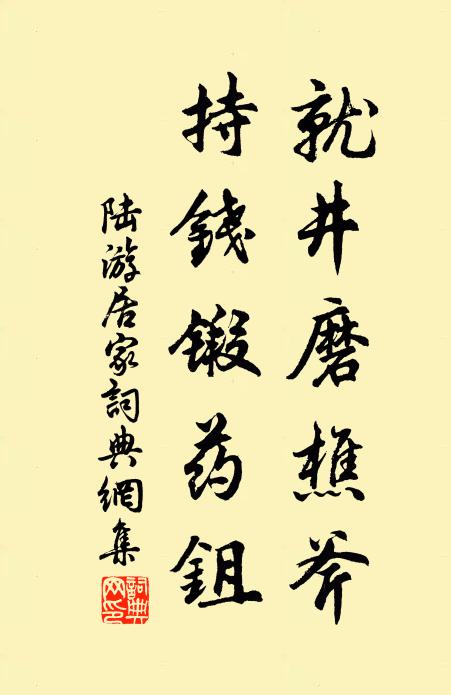 就井磨樵斧
持錢鍛药鉏
陆游居家詞典網集
詞典网印